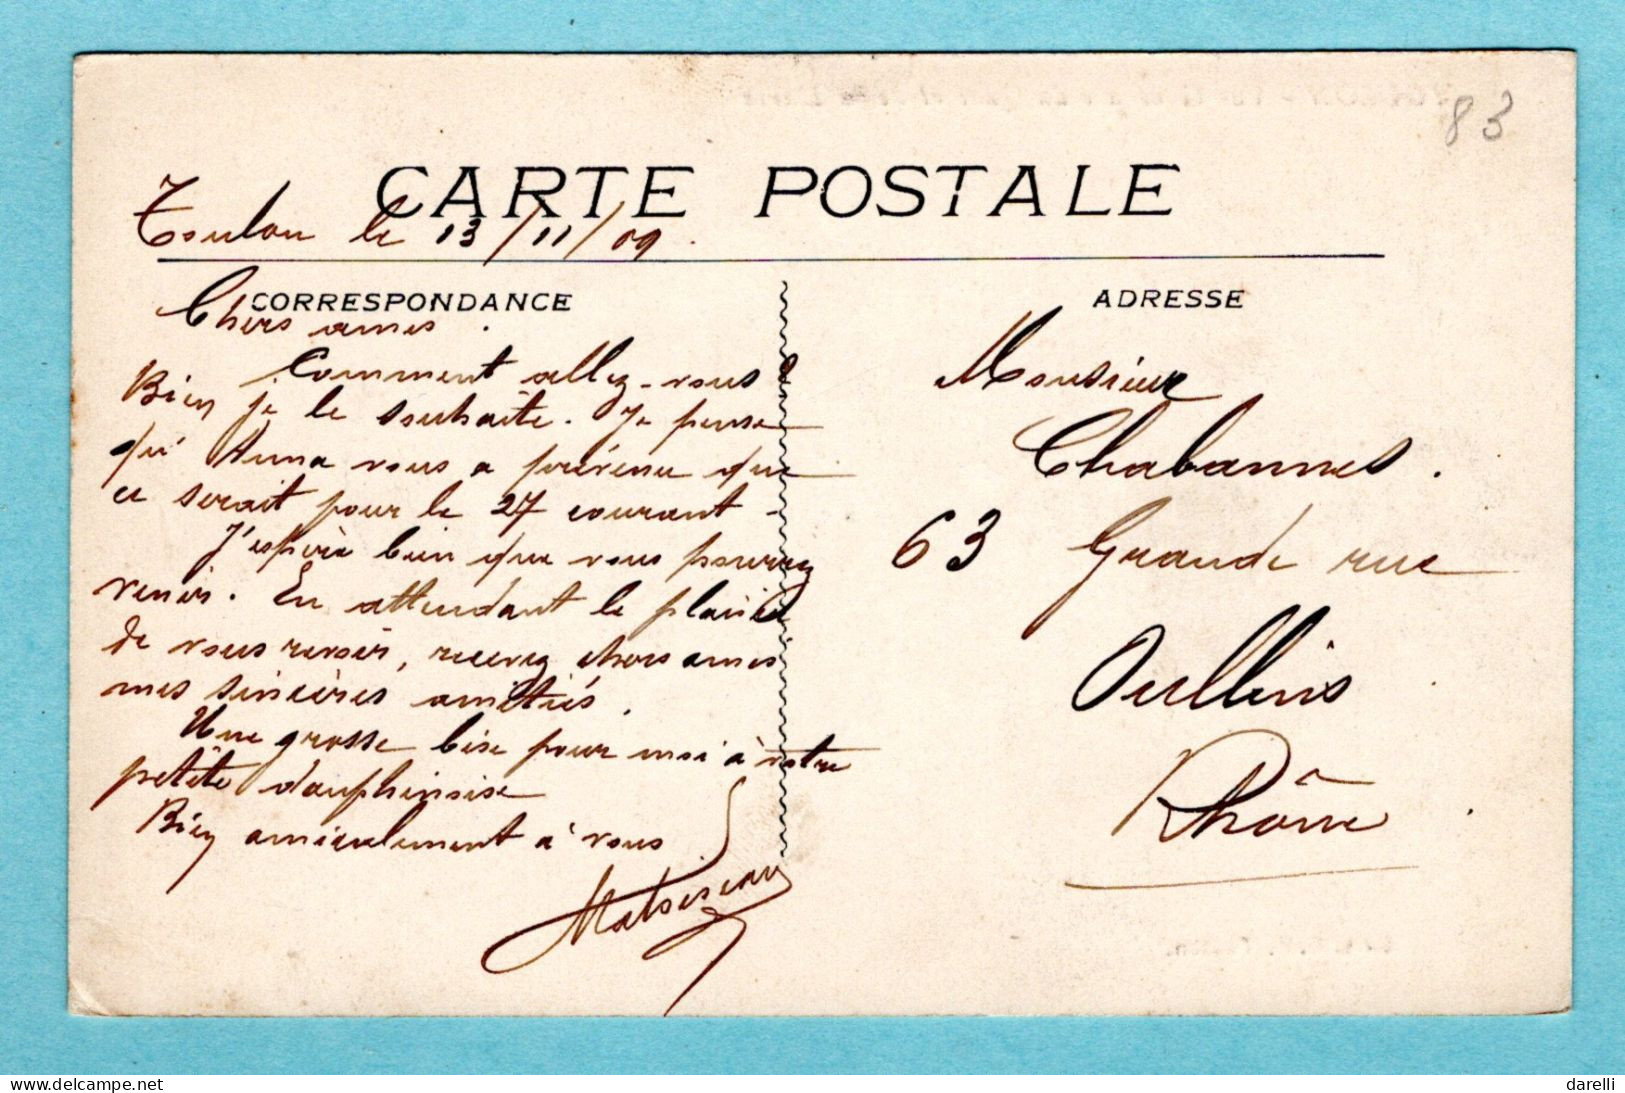 83
CARTE POSTALE
Toulon le 13/11/09.
CORRESPONDANCE
ADRESSE
Chers amis.
Comment allez-vous ?
Bien je le souhaite. Je pense
qu'Anna vous a prévenu que
ce serait pour le 27 courant -
J'espère bien que vous pourrez
venir. En attendant le plaisir
de vous revoir, recevez chers amis
mes sincères amitiés.
Une grosse bise pour moi à votre
petite dauphinoise
Bien amicalement à vous
Monsieur
Chabannes.
63 Grande rue
Oullins
Rhône
darelli